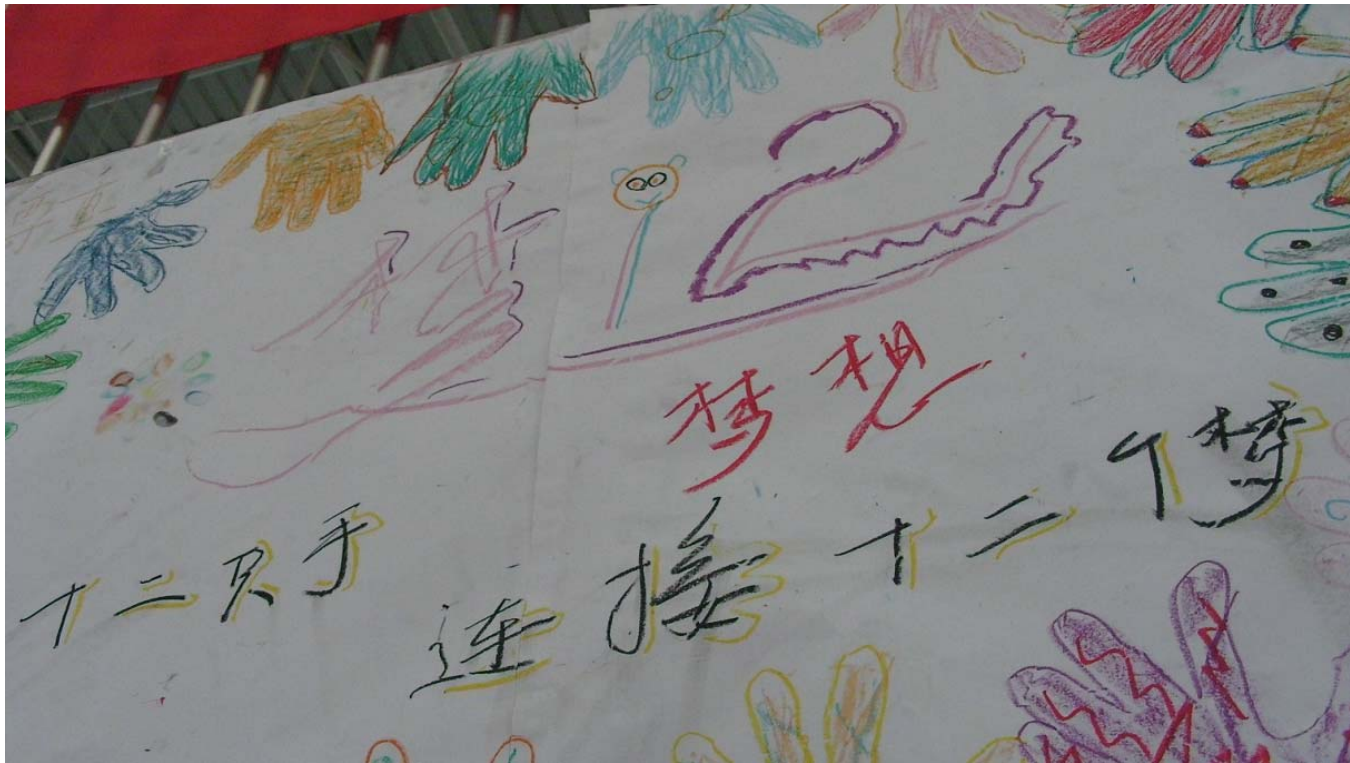 梦12
梦想
十二只手连接十二个梦